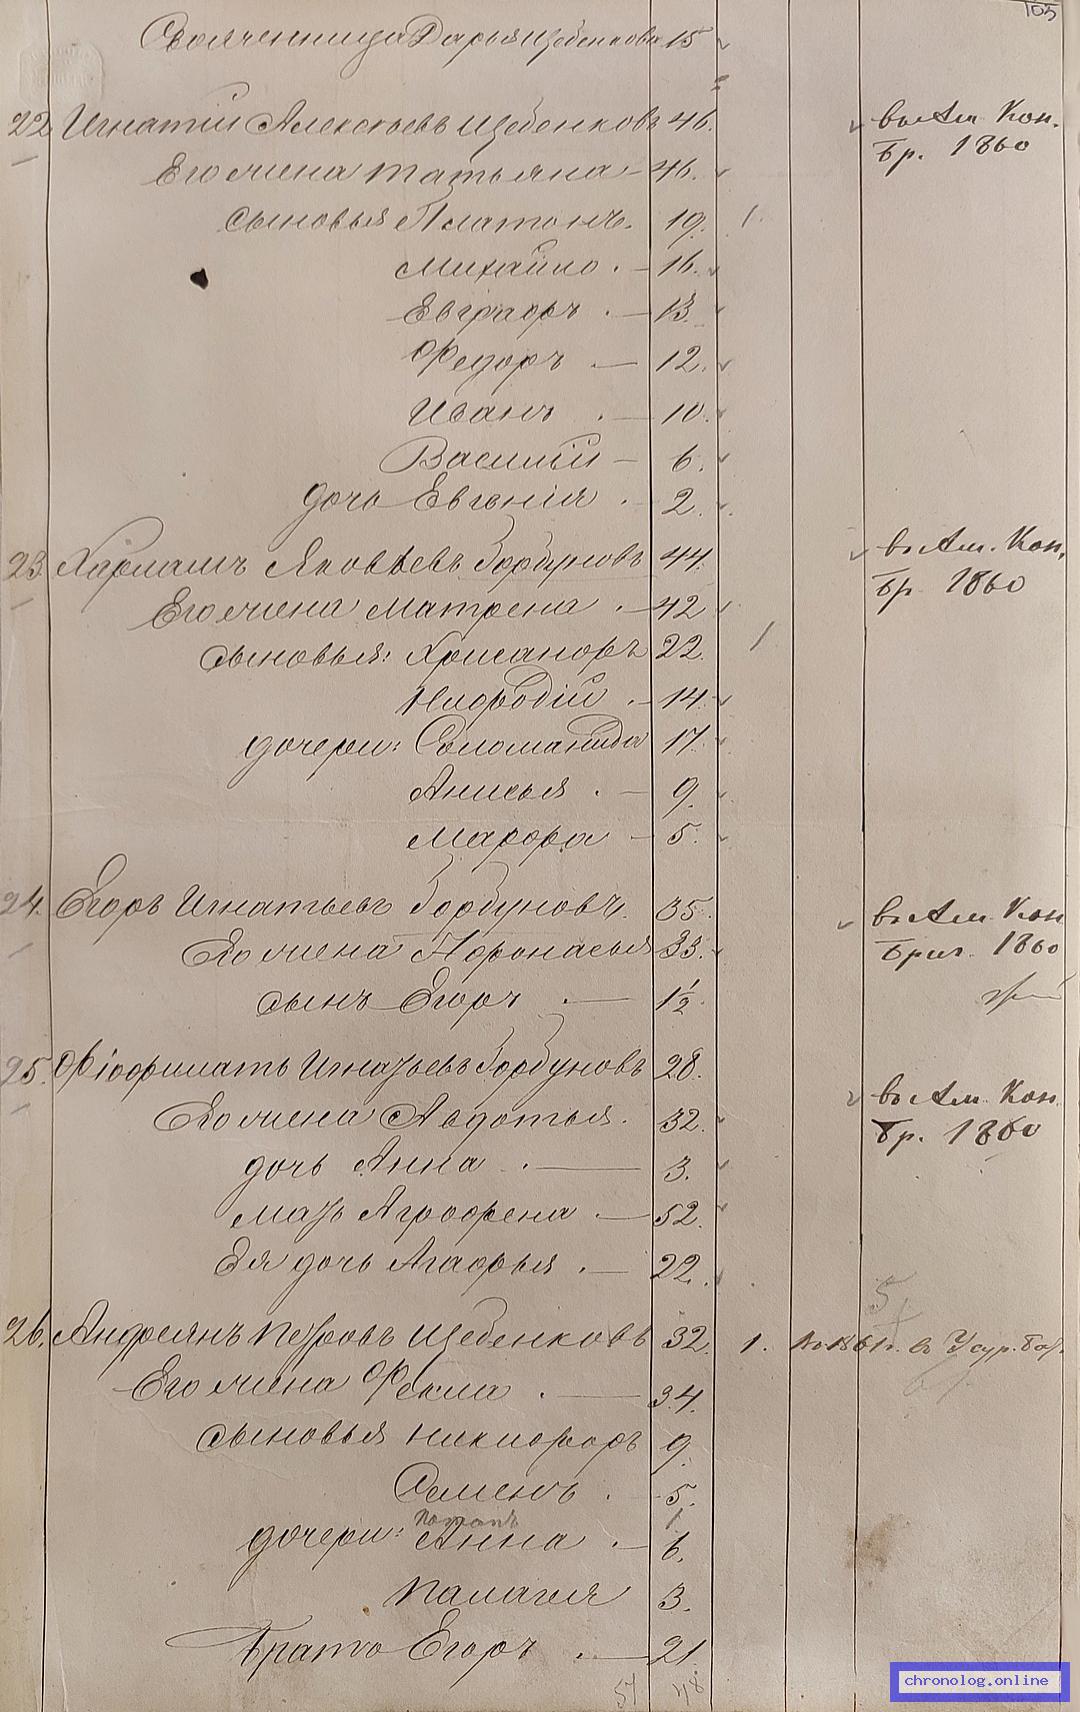 105
Свояченница Дарья Щебенкова 15
22 Игнатій Алексѣевъ Щебенковъ 46. въ Ам. Кон.
Бр. 1860
Его жена Татьяна - 46.
сыновья Платонъ. 19. 1.
Михайло. - 16.
Евграфъ. - 13.
Федоръ - 12.
Иванъ. - 10.
Василій - 6.
дочь Евгенія. - 2.
23 Харламъ Яковлевъ Горбуновъ 44. въ Ам. Кон.
Бр. 1860
Его жена Матрена. - 42
сыновья: Хрисанфъ 22. 1
14.
дочери: Соломанида 17.
Анисья. - 9.
Марфа - 5.
24. Егоръ Игнатьевъ Горбуновъ. 35. въ Ам. Кон
Бриг. 1860
Его жена Афонасья 33.
сынъ Егоръ. - 1½.
25. Фіофилатъ Игнатьевъ Горбуновъ 28.
въ Ам. Кон.
Бр. 1860
Его жена Авдотья. 32.
дочь Анна. - 3.
мать Агрофена. - 52.
Ея дочь Агафья. - 22.
5
26. Андреянъ Петровъ Щебенковъ 32. 1. 1861г. въ Усур. Бат.
Его жена Фекла. - 34.
сыновья Никифоръ 9.
Семенъ. 5.
Потапъ 1
дочери: Анна. - 6.
Палагея 3.
Братъ Егоръ. - 21.
57 48
chronolog.online